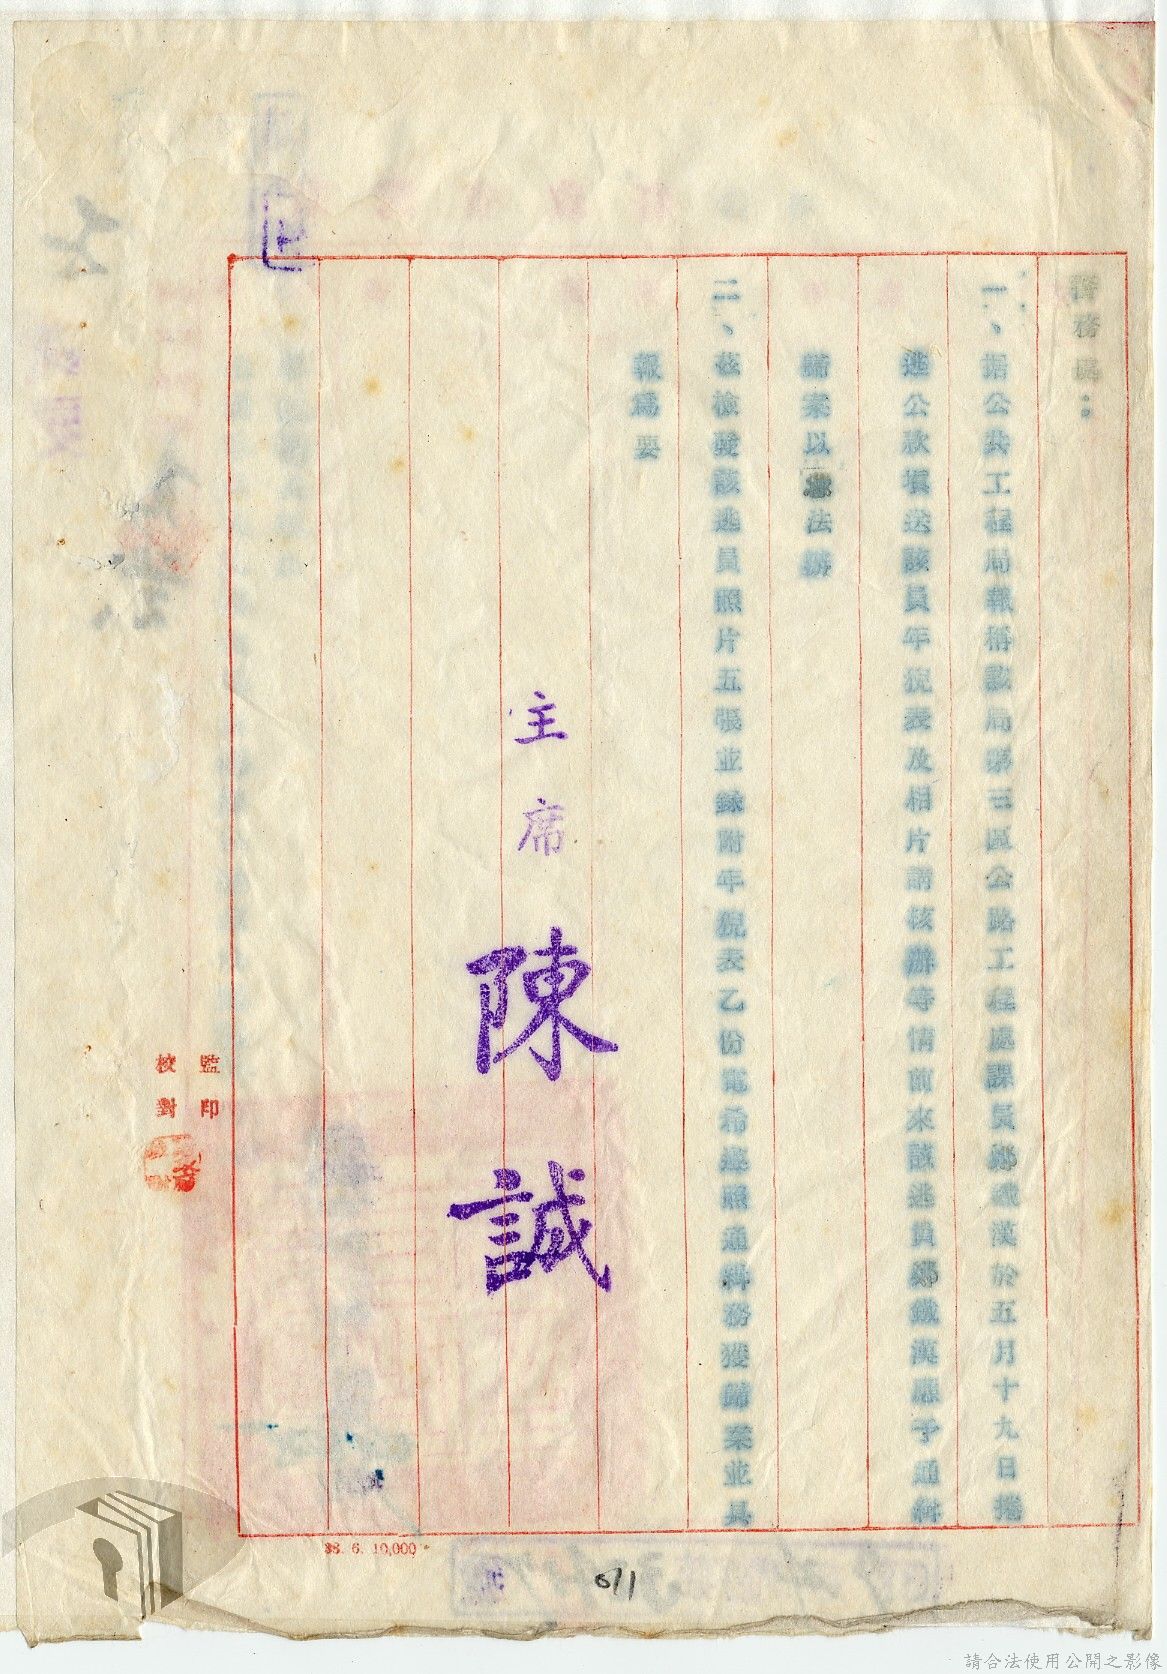 警務處：
一、据公共工程局報稱該局第三區公路工程處課員鄭鐵漢於五月十九日捲
逃公款填送該員年貌表及相片請核辦等情前來該逃員鄭鐵漢應予通緝
歸案以法辦
二、茲檢發該逃員照片五張並錄附年貌表乙份電希遵照通緝務獲歸案並具
報為要
主席 陳誠
監印
校對
38. 6. 10,000
請合法使用公開之影像